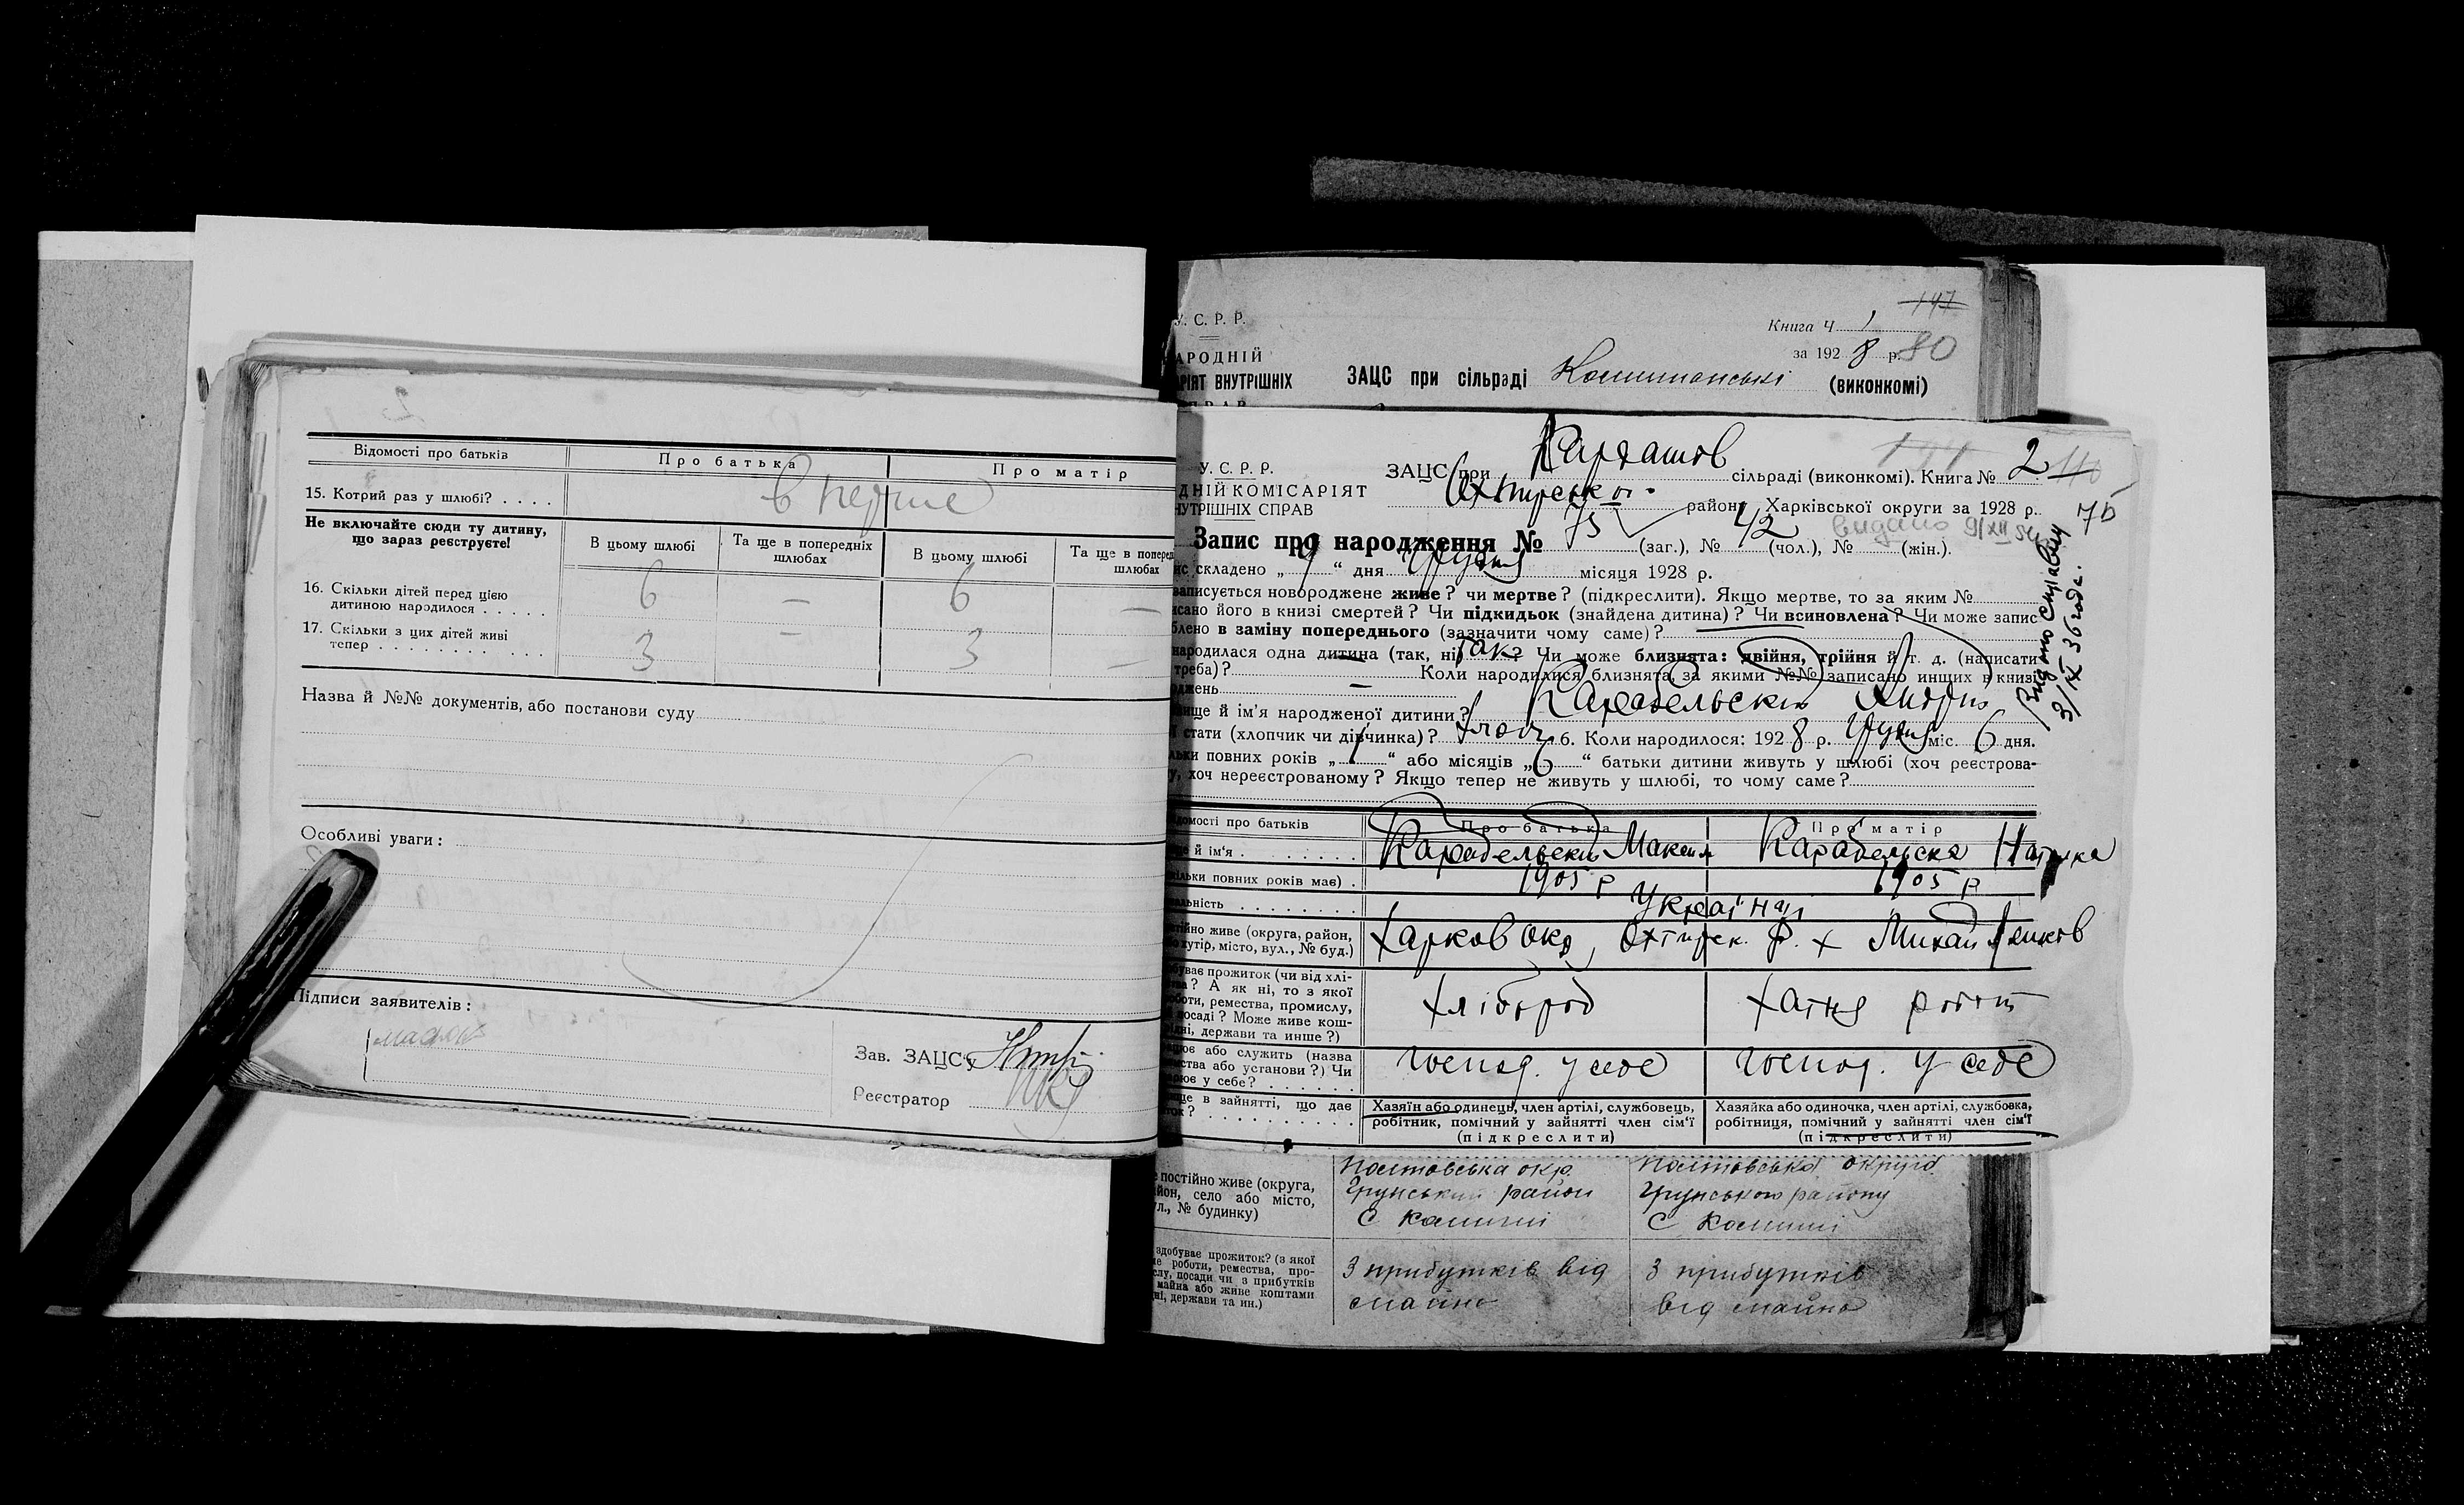 Відомості про батьків
Про батька
Про матір
15. Котрий раз у шлюбі? . . . .
вперше
Не включайте сюди ту дитину,
що зараз реєструєте!
В цьому шлюбі
Та ще в попередніх
шлюбах
В цьому шлюбі
Та ще в поперед
шлюбах
16. Скільки дітей перед цією
дитиною народилося . . . . .
6 — 6 —
17. Скільки з цих дітей живі
тепер . . . . . . . . . . .
3 — 3 —
Назва й №№ документів, або постанови суду
Особливі уваги:
Підписи заявителів:
Зав. ЗАЦСу
Реєстратор
У. С. Р. Р.
АРОДНІЙ
РІЯТ ВНУТРІШНІХ
147
Книга Ч 1
за 192 8 р. 80
ЗАЦС при сільраді (виконкомі)
У. С. Р. Р.
ДНІЙ КОМІСАРІЯТ
НУТРІШНІХ СПРАВ
ЗАЦС при Кардашов сільраді (виконкомі). Книга № 2
Охтирсько району Харківської округи за 1928 р.
70
Запис про народження № 75 (заг.), № 42 (чол.), № (жін.).
видано 9/XII
ис складено „ 9 “ дня грудня місяця 1928 р.
записується новороджене живе? чи мертве? (підкреслити). Якщо мертве, то за яким №
исано його в книзі смертей? Чи підкидьок (знайдена дитина)? Чи всиновлена? Чи може запис
блено в заміну попереднього (зазначити чому саме)?
народилася одна дитина (так, ні) так? Чи може близнята: двійня, трійня й т. д. (написати
треба)? Коли народилися близнята, за якими №№ записано инших в книзі
оджень —
вище й ім'я народженої дитини? Карабельский Андрій
ї стати (хлопчик чи дівчинка)? хлоп 6. Коли народилося: 192 8 р. грудня міс. 6 дня.
льки повних років „ 1 “ або місяців „ 6 “ батьки дитини живуть у шлюбі (хоч реєстрова-
у, хоч нереєстрованому? Якщо тепер не живуть у шлюбі, то чому саме?
3/IX 36 годе.
домості про батьків
Про батька
Про матір
ще й ім'я . . . . . . . .
Карабельский Максим
Карабельска
ільки повних років має) .
1905 р
1905 р
альність . . . . . . . .
Україн
тійно живе (округа, район,
о хутір, місто, вул., № буд.)
Харков окр, Охтирск. р. х
буває прожиток (чи від хлі-
ва? А як ні, то з якої
оботи, ремества, промислу,
посаді? Може живе кош-
ідні, держави та инше?)
хлібороб
хатня робот
ацює або служить (назва
ства або установи?) Чи
рює у себе? . . . . . .
господ. у себе
господ. у себе
ще в зайнятті, що дає
ток? . . . . . . . . .
Хазяїн або одинець, член артілі, службовець,
робітник, помічний у зайнятті член сім'ї
(підкреслити)
Хазяйка або одиночка, член артілі, службовка,
робітниця, помічний у зайнятті член сім'ї
(підкреслити)
е постійно живе (округа,
йон, село або місто,
ул., № будинку)
Полтовська окр
Грунський район
Полтовська округа
Грунського району
здобуває прожиток? (з якої
ме роботи, ремества, про-
слу, посади чи з прибутків
майна або живе коштами
ні, держави та ин.)
З прибутків від
майна
З прибутків
від майна